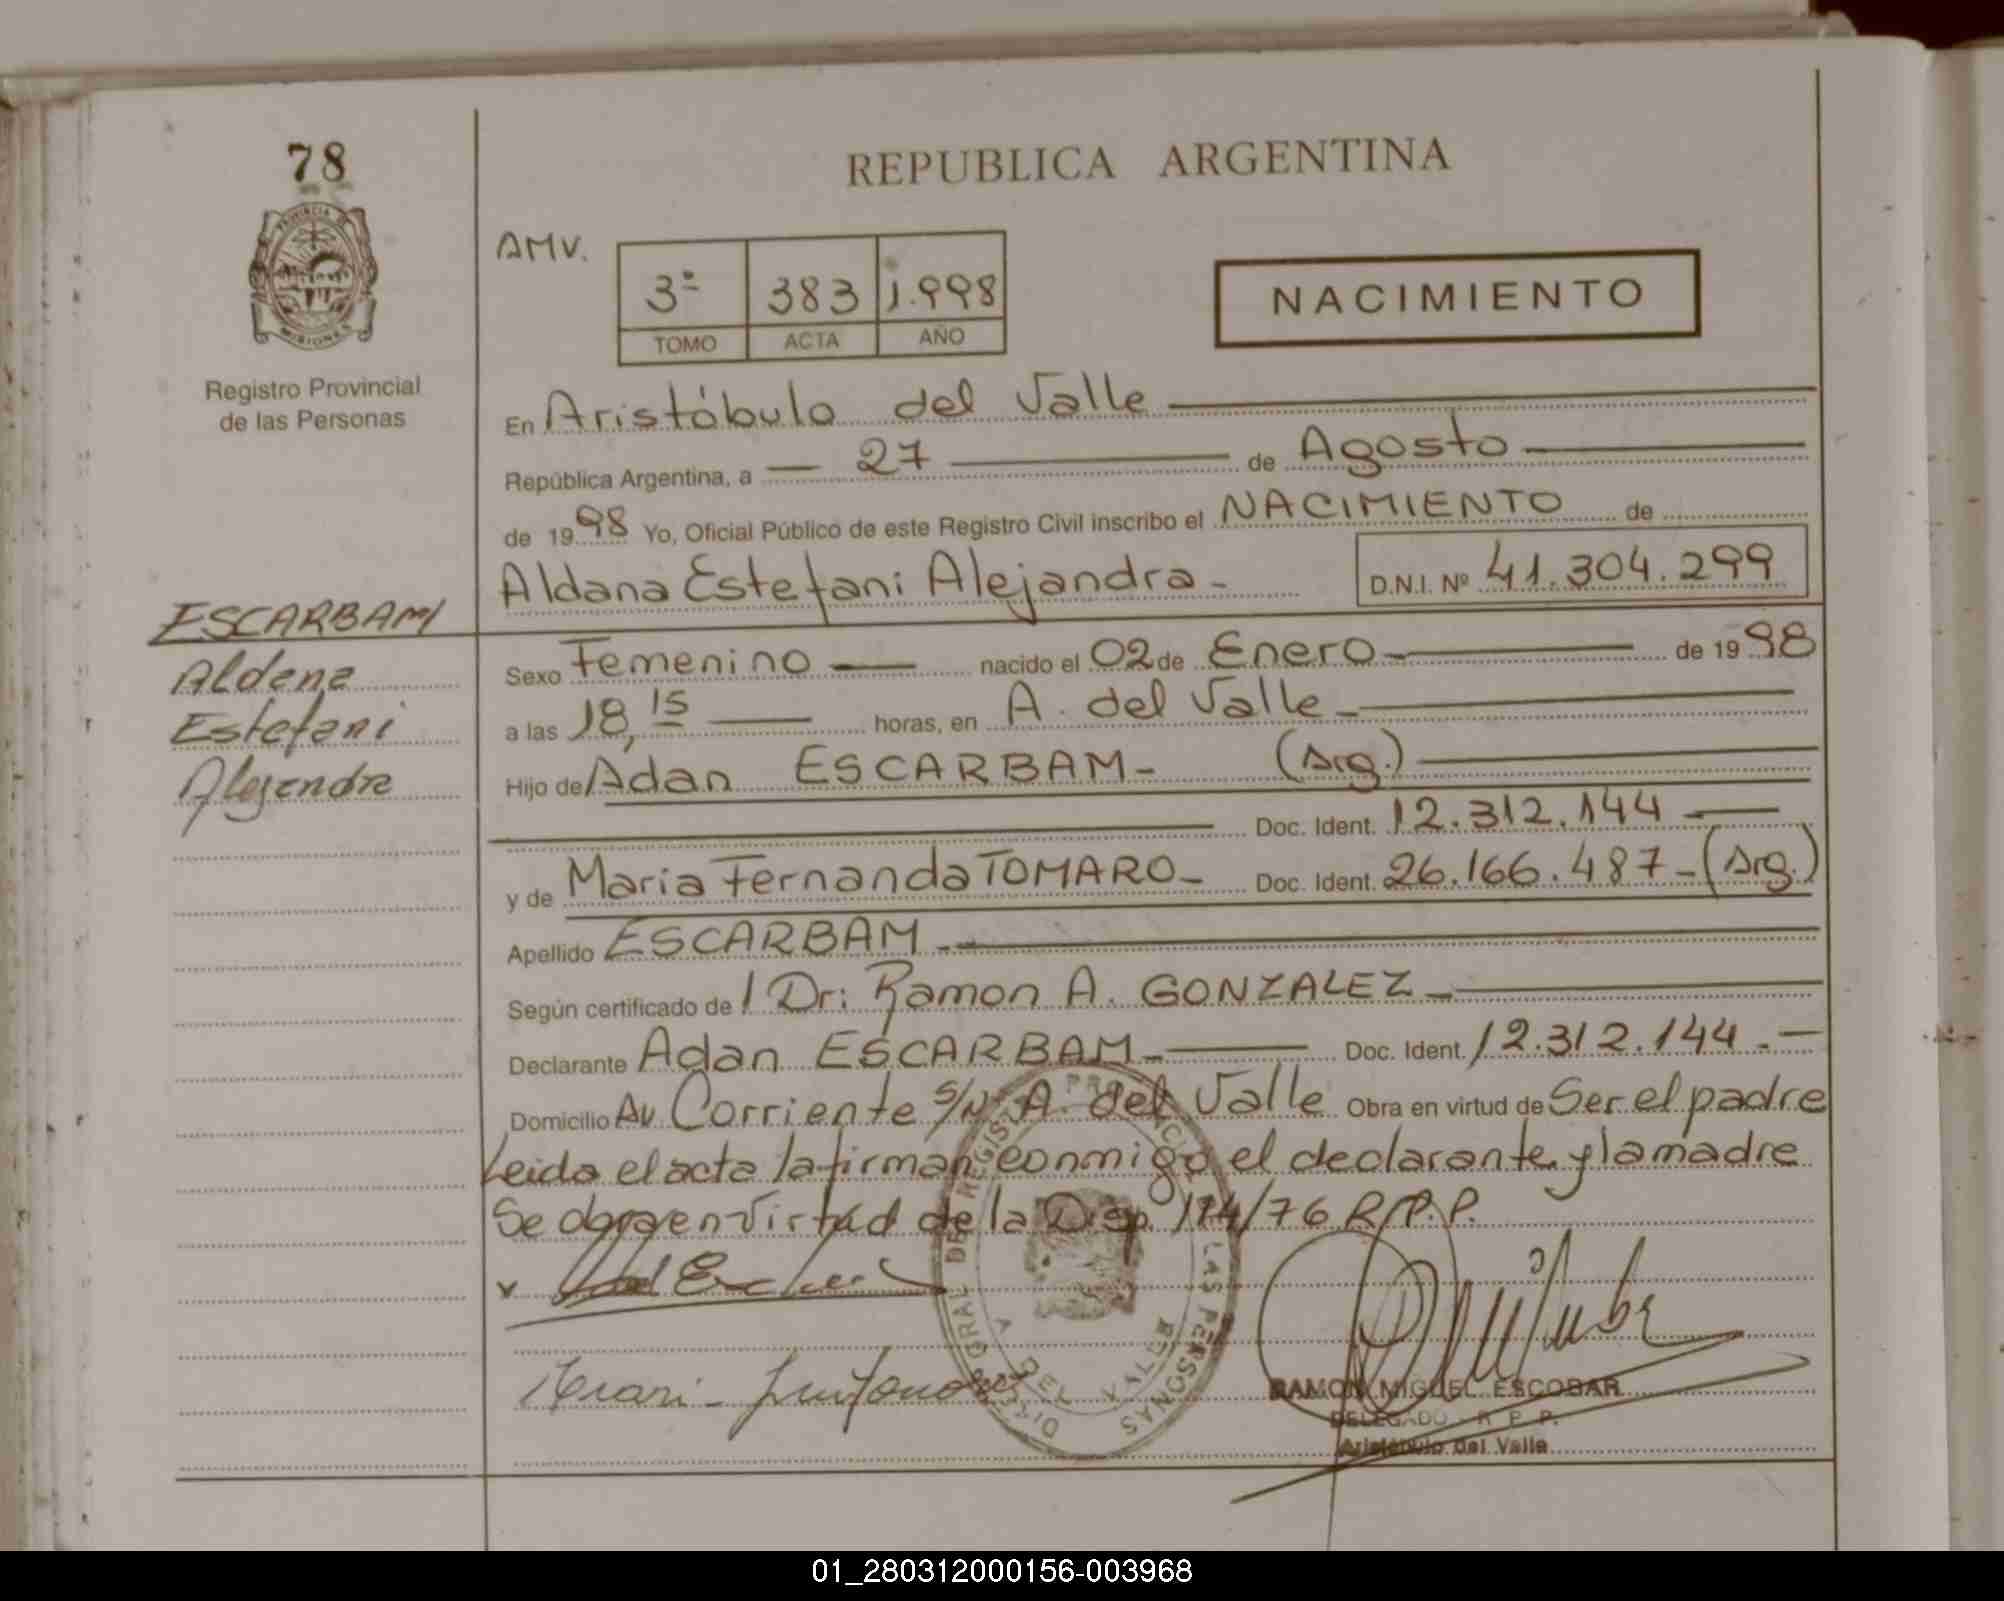 78
PROVINCIA DE
MISIONES
Registro Provincial
de las Personas
REPUBLICA ARGENTINA
AMV.
3º 383 1.998
TOMO ACTA AÑO
NACIMIENTO
En Aristóbulo del Valle
República Argentina, a 27 de Agosto
de 1998 Yo, Oficial Público de este Registro Civil inscribo el NACIMIENTO de
Aldana Estefani Alejandra - D.N.I. Nº 41.304.299
ESCARBAM
Aldana
Estefani
Alejandra
Sexo Femenino nacido el 02 de Enero de 1998
a las 18,15 horas, en A. del Valle
Hijo de Adan ESCARBAM - (Arg.)
Doc. Ident. 12.312.144
y de Maria Fernanda TOMARO - Doc. Ident. 26.166.487 - (Arg.)
Apellido ESCARBAM
Según certificado de Dr: Ramon A. GONZALEZ
Declarante Adan ESCARBAM Doc. Ident. 12.312.144.-
Domicilio Av Corriente S/Nº A. del Valle Obra en virtud de Ser el padre
Leida el acta la firman conmigo el declarante y la madre
Se obra en virtud de la Disp. 174/76 R.P.P.
DIREC. GRAL DEL REGISTRO PROVINCIAL DE LAS PERSONAS
A. DEL VALLE
RAMON MIGUEL ESCOBAR
DELEGADO - R. P. P.
Aristóbulo del Valle
01_280312000156-003968